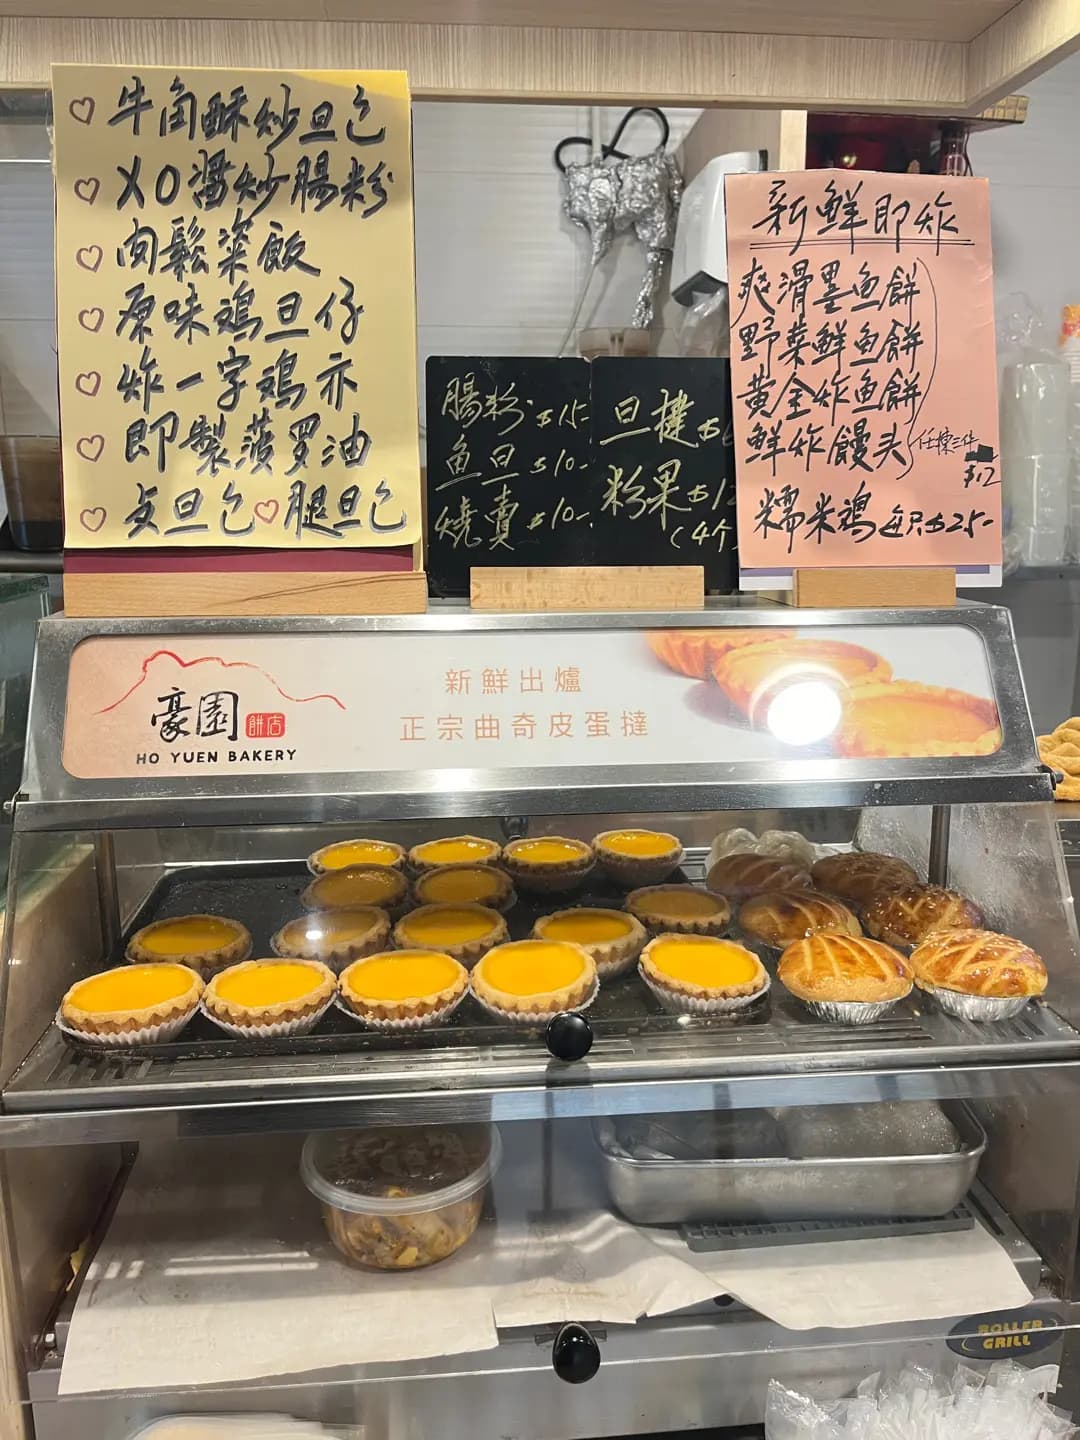 牛角酥炒旦包
XO醬炒腸粉
肉鬆粢飯
原味鸡旦仔
炸一字鸡亦
即製菠罗油
文旦包♡腿旦包
腸粉 $15-
魚旦 $10-
燒賣 $10-
旦撻 $
粉果 $1
(4个)
新鮮即炸
爽滑墨魚餅
野菜鮮魚餅
黃金炸魚餅
鮮炸饅头
任揀三件
$12
糯米鸡 每只$25-
豪園 餅店
HO YUEN BAKERY
新鮮出爐
正宗曲奇皮蛋撻
ROLLER GRILL